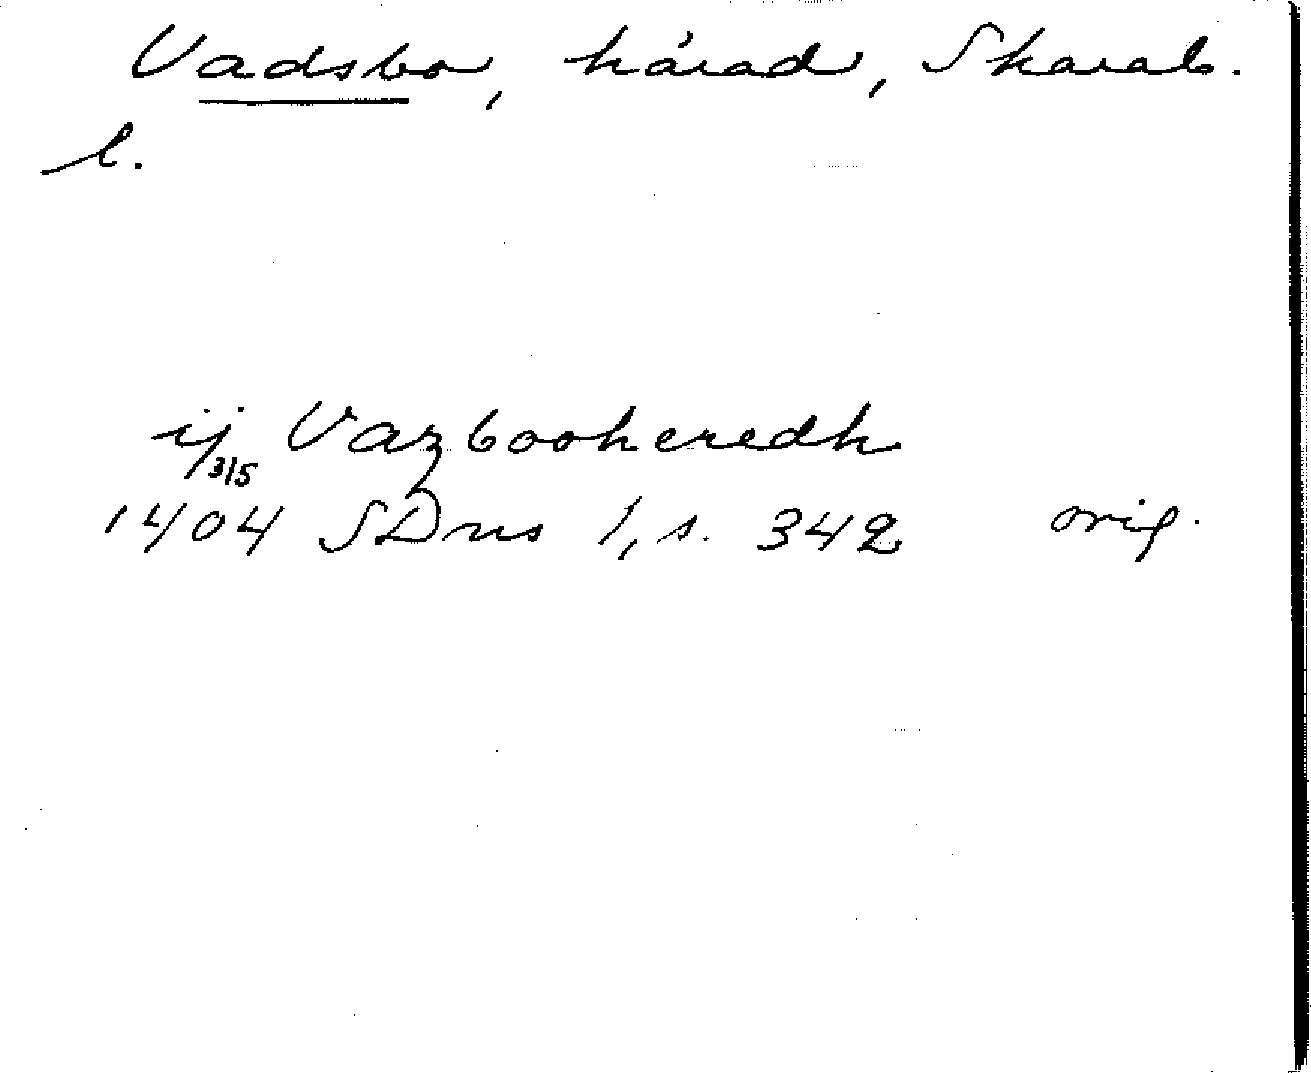 Vadsbo, härad, Skarab.
l.
ij Vazbooheredh
3/5
1404 SDns 1, s. 342 orig.